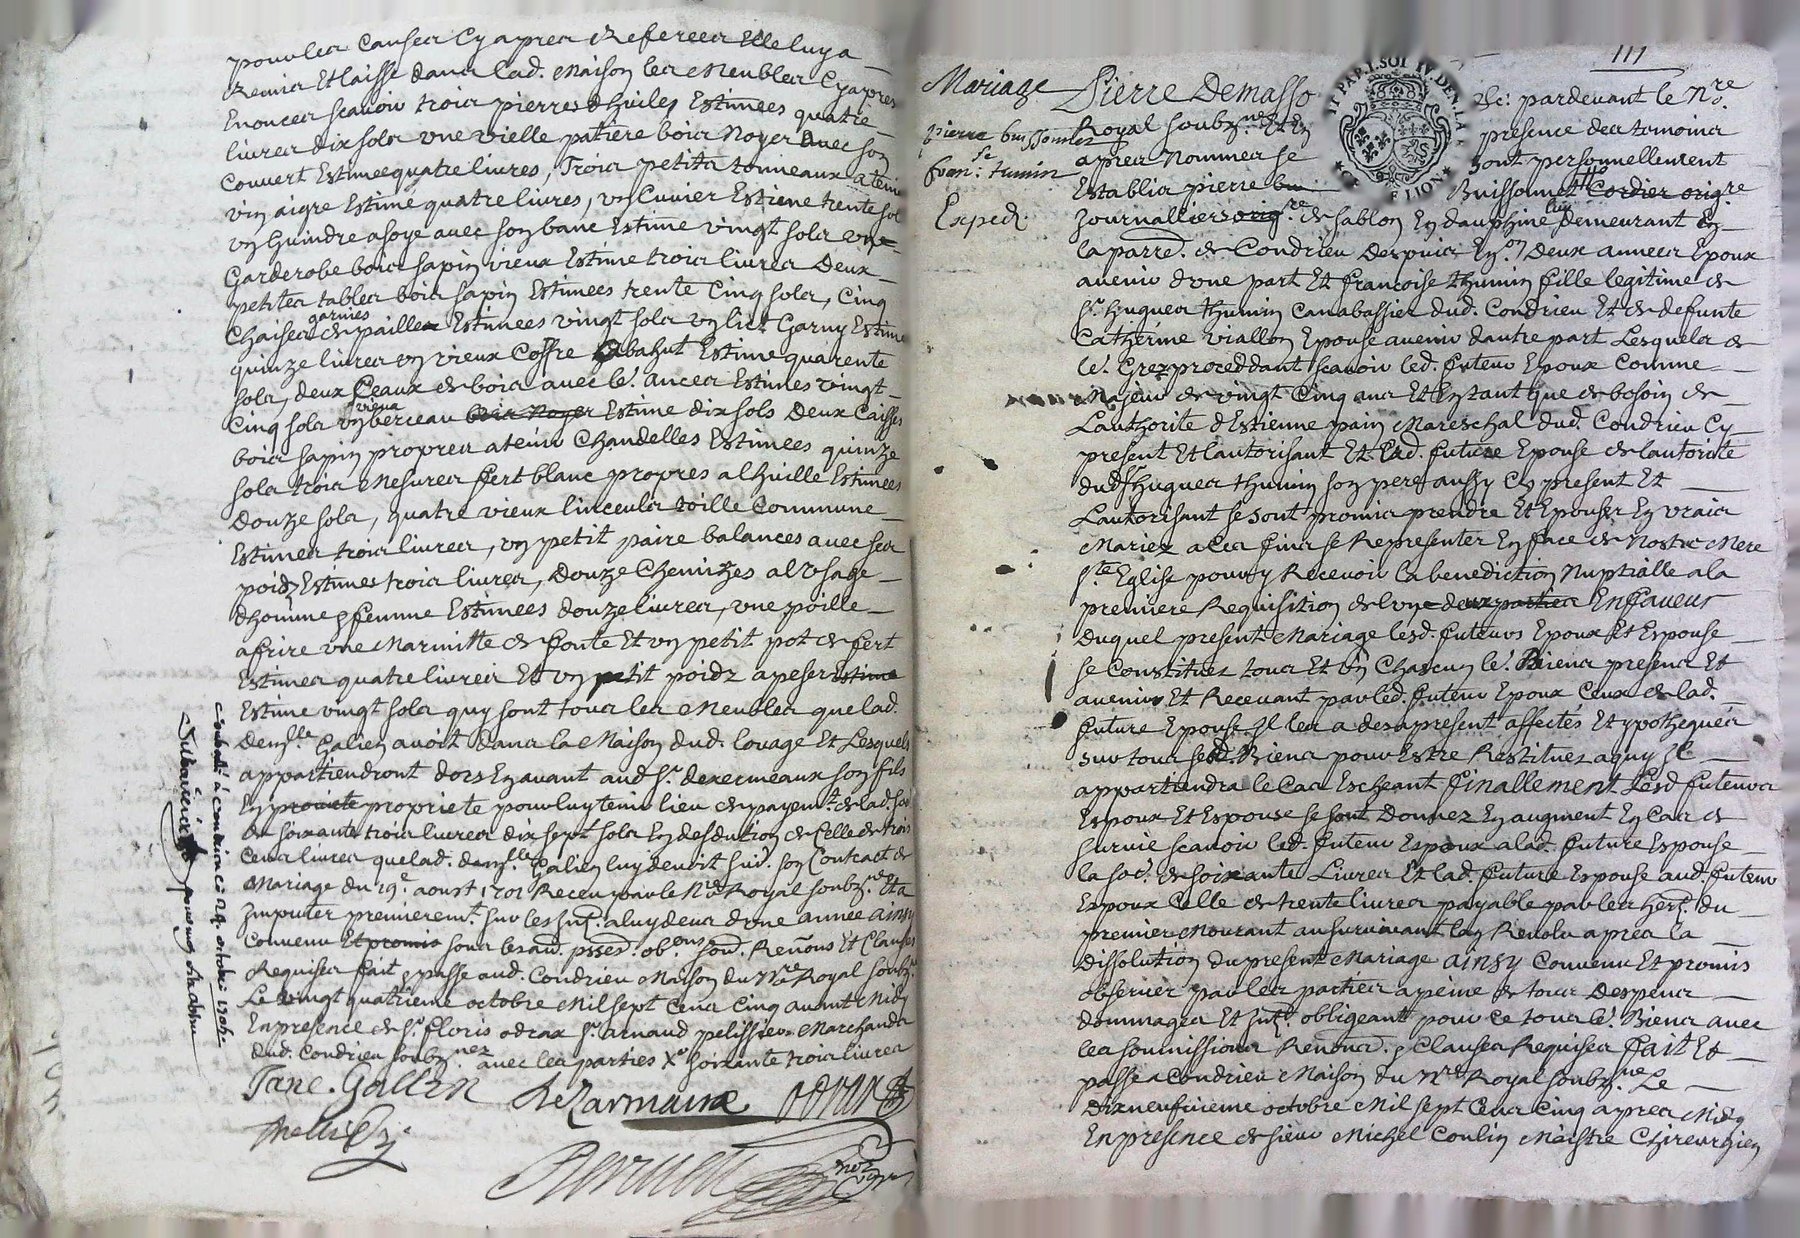 pour les causes cy apres Referees Elle luy a
Remis Et laisse dans lad. Maison les Meubles Cyapres
Enonces scavoir trois pierres dhuiles Estimees quatre
livres dix sols une vielle patiere bois Noyer avec son
Couvert Estimee quatre livres, Trois petits tonneaux a tenir
vin aigre Estime quatre livres, un Cuvier Estime trente sol
un Guindre a soye avec son banc Estime vingt sols une
Garderobe bois sapin vieux Estime trois livres Deux
petites tables bois sapin Estimees trente Cinq sols, Cinq
Chaises garnies de paille Estimees vingt sols un lict Garny Estime
quinze livres un vieux Coffre bahut Estime quarente
sols, deux seaux de bois avec le. ances Estimes vingt
Cinq sols un vieux berceau bois Noyer Estime dix sols Deux Caisses
bois sapin propres a tenir Chandelles Estimees quinze
sols trois Mesures fert blanc propres a lhuille Estimees
Douze sols, quatre vieux linceuls toille Commune
Estimes trois livres, un petit paire balances avec ses
poidz Estimes trois livres, Douze Chemizes a lusage
dhomme & femme Estimees douze livres, une poille
a frire une Marmitte de fonte Et un petit pot de fert
Estimes quatre livres Et un petit poidz a peser Estime
Estime vingt sols quy sont tous les Meubles que lad.
Demslle Galien avoit dans la Maison dud. louage Et Lesquels
appartiendront dors En avant aud Sr. Dexermeaux son fils
En propriete pour luy tenir lieu de payemt. de lad. so
de soixante trois livres dix sept sols En desdution de Celle de trois
Cens livres que lad. demslle Galien luy devoit suiv. son Contract de
Mariage du 19e. aoust 1701 Receu par le Nre Royal soubzne. Et a
Imputer premieremt. sur les Int. a luy deus dune annee ainsy
Convenu Et promis sous lesd. ob. ons. Renons Et Clauses
Requises fait & passe aud. Condrieu Maison du Nre Royal soubz
Le vingt quatrieme octobre Mil sept Cens Cinq avant Midy
En presence de Sr. floris odrax Sr. arnaud pelissier Marchands
dud. Condrieu soubznez avec les parties X soixante trois livres
Jane. Gallien DeZarmaux odrax
pellissier
Controllé a Condrieu ce 24. octobre 1705.
111
Mariage
pierre buissonnet
& fran.se tumin
Exped.
Pierre Demasso &c: pardevant le Nre.
Royal soubz.ne Et En presence des temoins
apres Nommes se sont personnellement
Establis pierre bu Buissonnet Cordier orig.re
Journallier orig.re de sablon En dauphine Demeurant En
la parre. de Condrieu Despuis En.on Deux annees Epoux
avenir dune part Et francoise thumin fille legitime de
Sr. hugues thumin Canabassier dud. Condrieu Et de defunte
Catherine viallon Epouse avenir dautre part Lesquels de
le. Grez procedant scavoir led. futeur Epoux Comme
Majeur de vingt Cinq ans Et En tant que de besoin de
Lauthorite dEstienne pain Mareschal dud. Condrieu Cy
present Et lautorisant Et Lad. future Epouse de lautorite
dud Sr hugues thumin son pere aussy Cy present Et
Lautorisant se sont promis prendre Et Epouser En vrais
Mariez a les fins se Representer En face de Nostre Mere
Ste Eglise pour y Recevoir la benediction Nuptialle a la
premiere Requisition de lune deux parties En faveur
Duquel present Mariage lesd. futeurs Epoux Et Espouse
se Constituez tous Et un Chascun le. Biens presens Et
avenirs Et Recevant par led. futeur Epoux Ceux de lad.
future Epouse Il les a desapresent affectés Et ypotheques
sur tous sesd. Biens pour Estre Restitues a quy Il
appartiendra le Cas Escheant finallement Lesd futeurs
Espoux Et Espouse se sont Donnez En augment En Cas de
survie scavoir led. futeur Espoux a lad. future Espouse
la soe. de soixante Livres Et lad. future Espouse aud. futeur
Espoux Celle de trente livres payable par les hers. du
premier Mourant au survivant lan Revolu apres la
Dissolution du present Mariage ainsy Convenu Et promis
observer par les parties a peine de tous Despens
dommages Et Int. obligeant pour ce tous le. Biens avec
les soumissions Renons. & Clauses Requises fait Et
passe a Condrieu Maison du Nre Royal soubz.ne Le
Dixneufvieme octobre Mil sept Cens Cinq apres Midy
En presence de sieur Michel Coulin Maistre Chirurgien